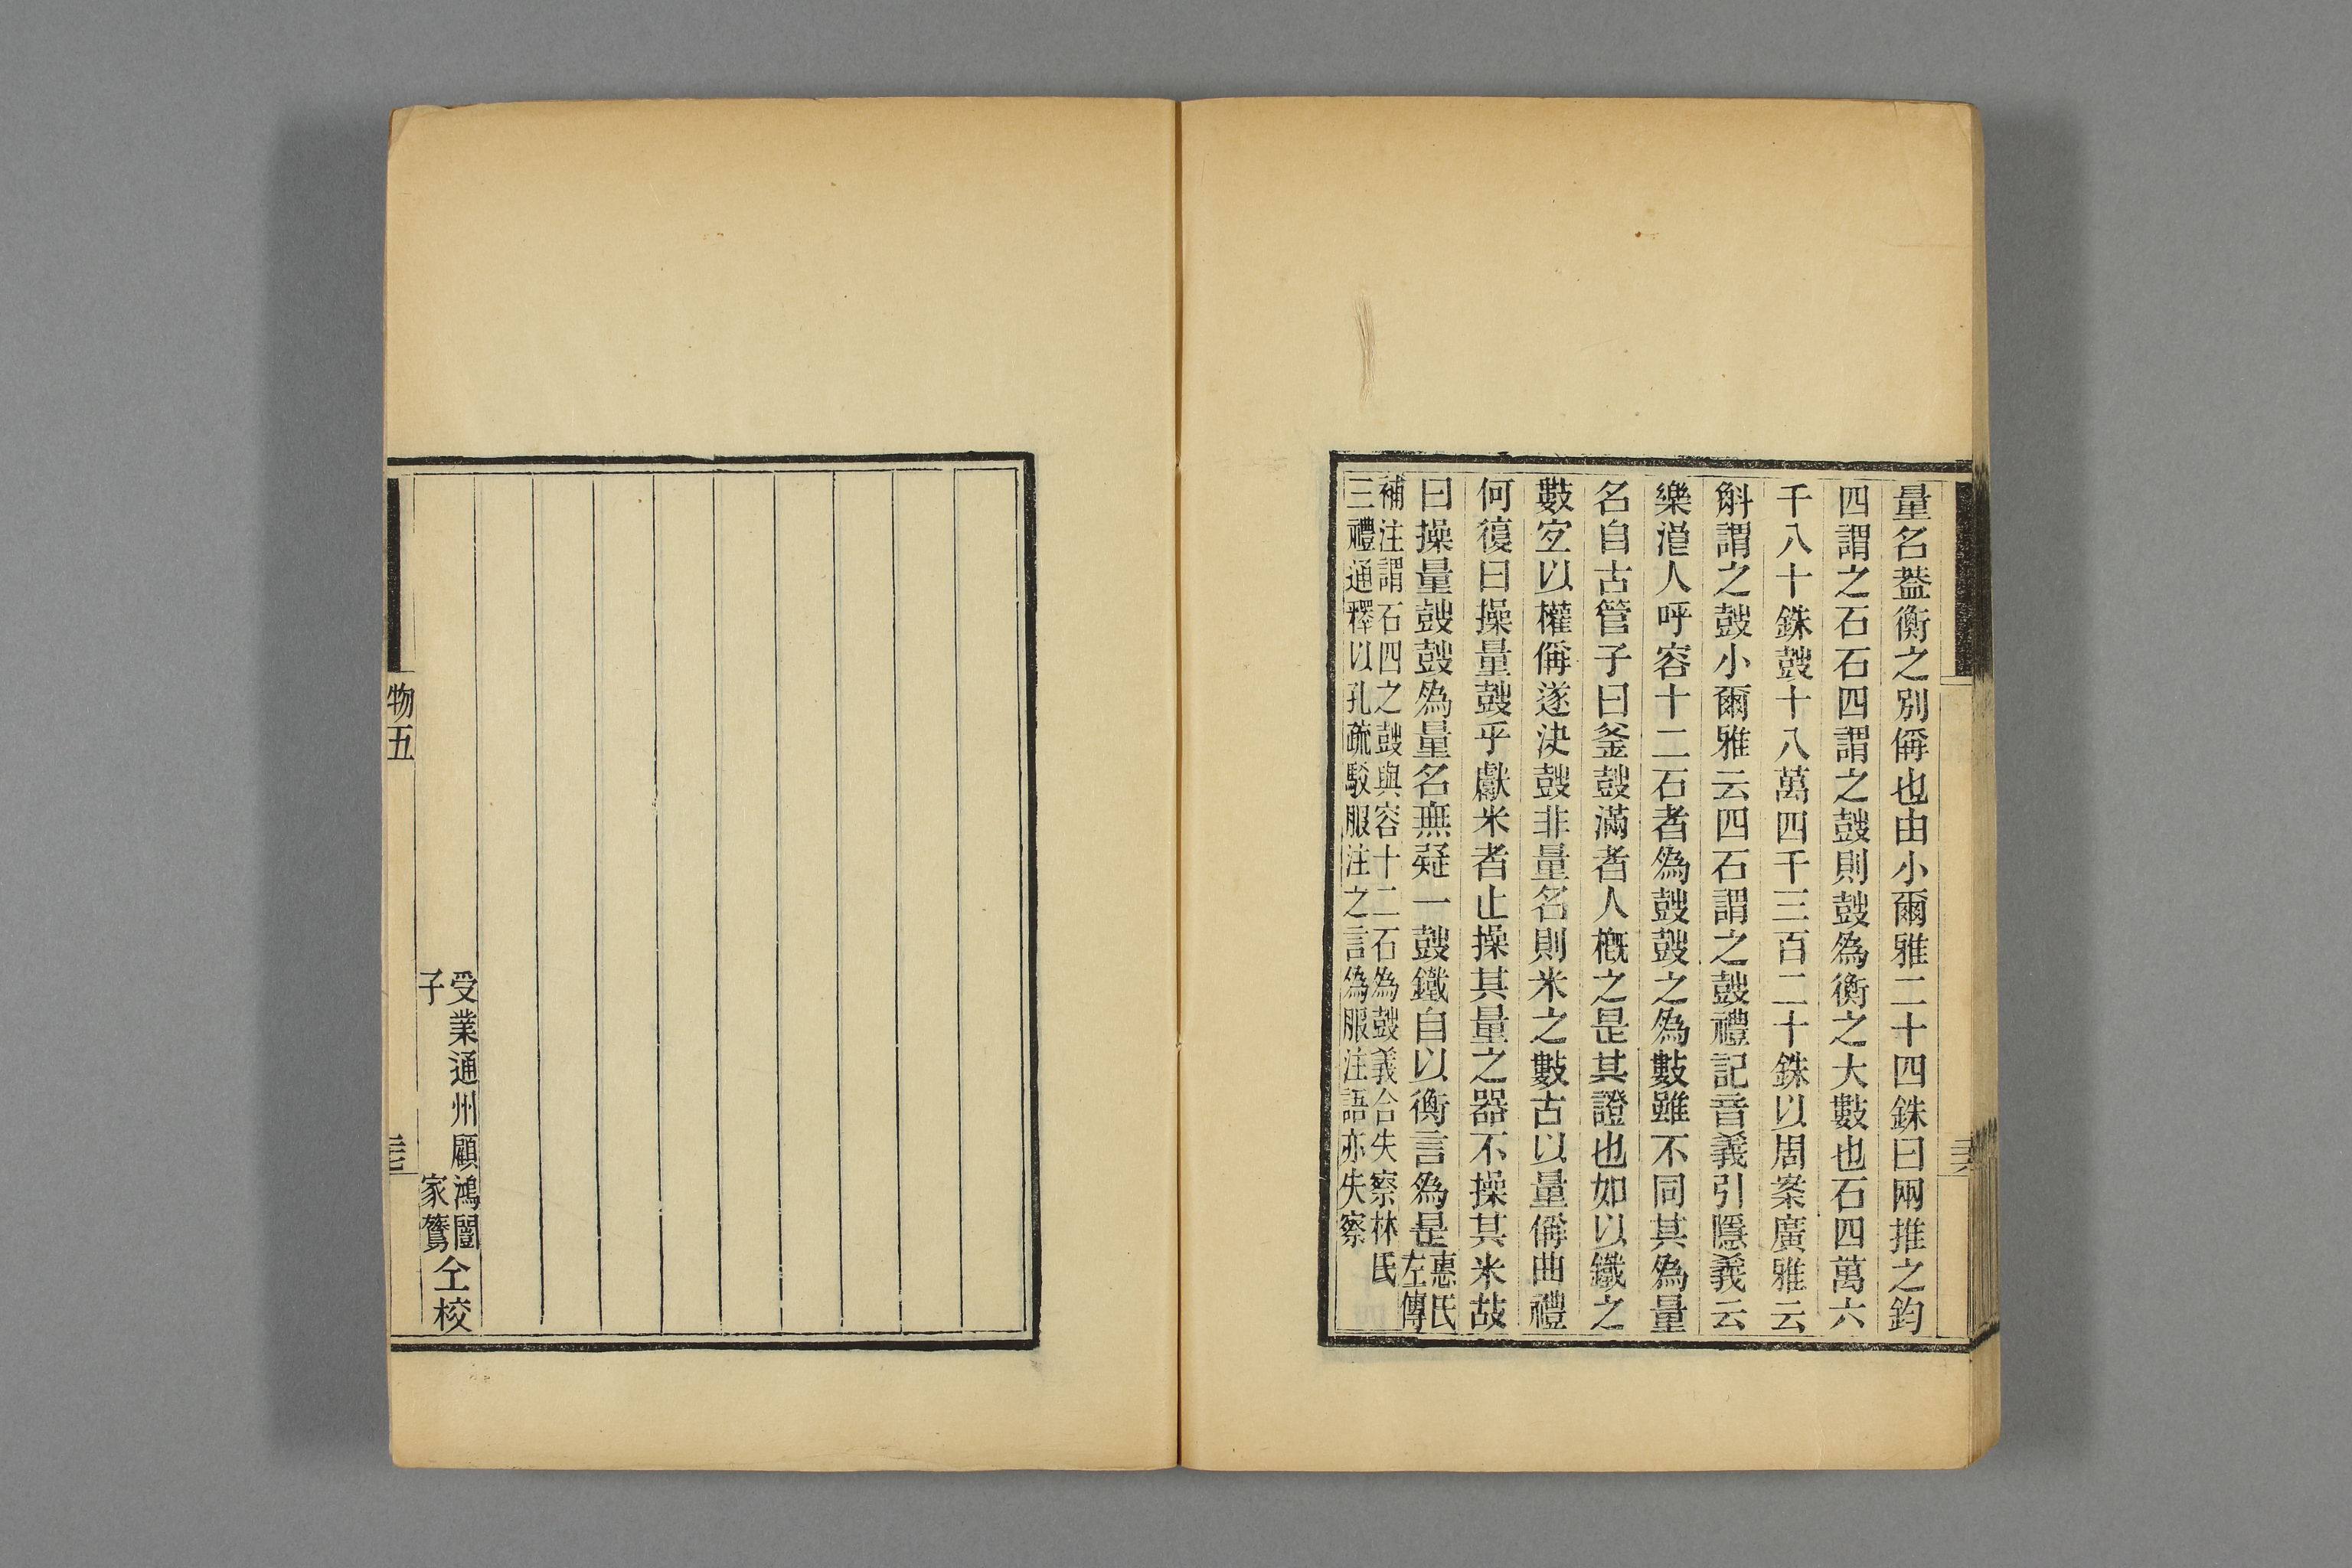 量名葢衡之別偁也由小爾雅二十四銖曰兩推之鈞
四謂之石石四謂之鼓則鼓為衡之大數也石四萬六
千八十銖鼓十八萬四千三百二十銖以周案廣雅云
斛謂之鼓小爾雅云四石謂之鼓禮記音義引隱義云
樂浪人呼容十二石者為鼓鼓之為數雖不同其為量
名自古管子曰釜鼓滿者人概之是其證也如以鐵之
數定以權偁遂決鼓非量名則米之數古以量偁曲禮
何復曰操量鼓乎獻米者止操其量之器不操其米故
曰操量鼓鼓為量名無疑一鼓鐵自以衡言為是惠氏左傳
補注謂石四之鼓與容十二石為鼓義合失察林氏
三禮通釋以孔疏駁服注之言為服注語亦失察
物五
受業通州顧鴻闓
子家鶿
仝校